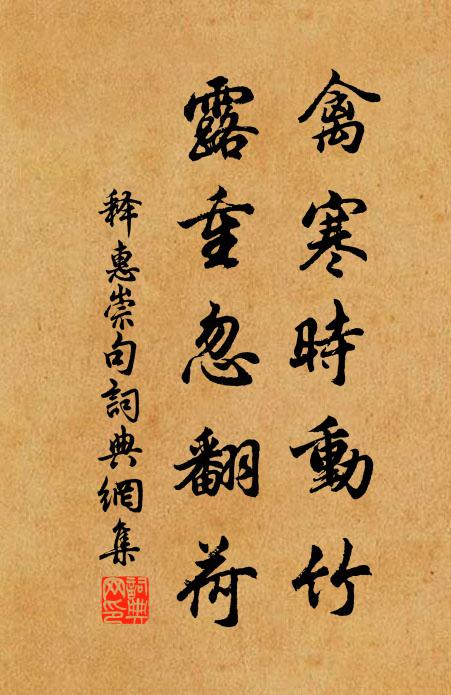 禽寒時動竹
露重忽翻荷
释惠崇句詞典網集
詞典网印